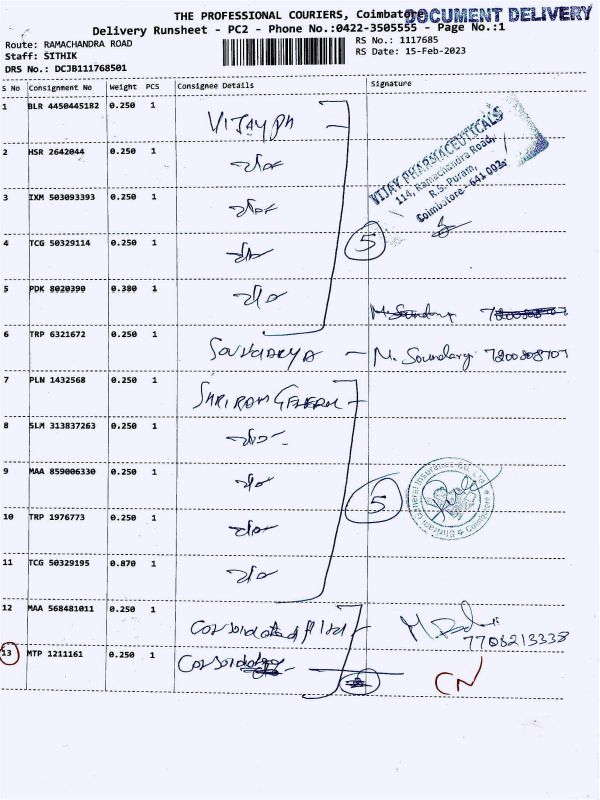 THE PROFESSIONAL COURIERS, Coimbatore
DOCUMENT DELIVERY
Delivery Runsheet - PC2 - Phone No.:0422-3505555 - Page No.:1
Route: RAMACHANDRA ROAD
Staff: SITHIK
DRS No.: DCJB111768501
RS No.: 1117685
RS Date: 15-Feb-2023
S No Consignment No Weight PCS Consignee Details Signature
1 BLR 4450445182 0.250 1 VIJAY PH
VIJAY PHARMACEUTICALS
114, Ramachandra Road,
R.S. Puram,
Coimbatore - 641 002.
2 HSR 2642044 0.250 1
3 IXM 503093393 0.250 1
4 TCG 50329114 0.250 1
5
5 PDK 8020390 0.380 1
6 TRP 6321672 0.250 1 SOUNDARYA M. Soundarya
7 PLN 1432568 0.250 1 SHRIRAM GENERAL
8 SLM 313837263 0.250 1
9 MAA 859006330 0.250 1
Shriram General Insurance Co. Ltd. Coimbatore
5
10 TRP 1976773 0.250 1
11 TCG 50329195 0.870 1
12 MAA 568481011 0.250 1
7708213338
13 MTP 1211161 0.250 1
CN